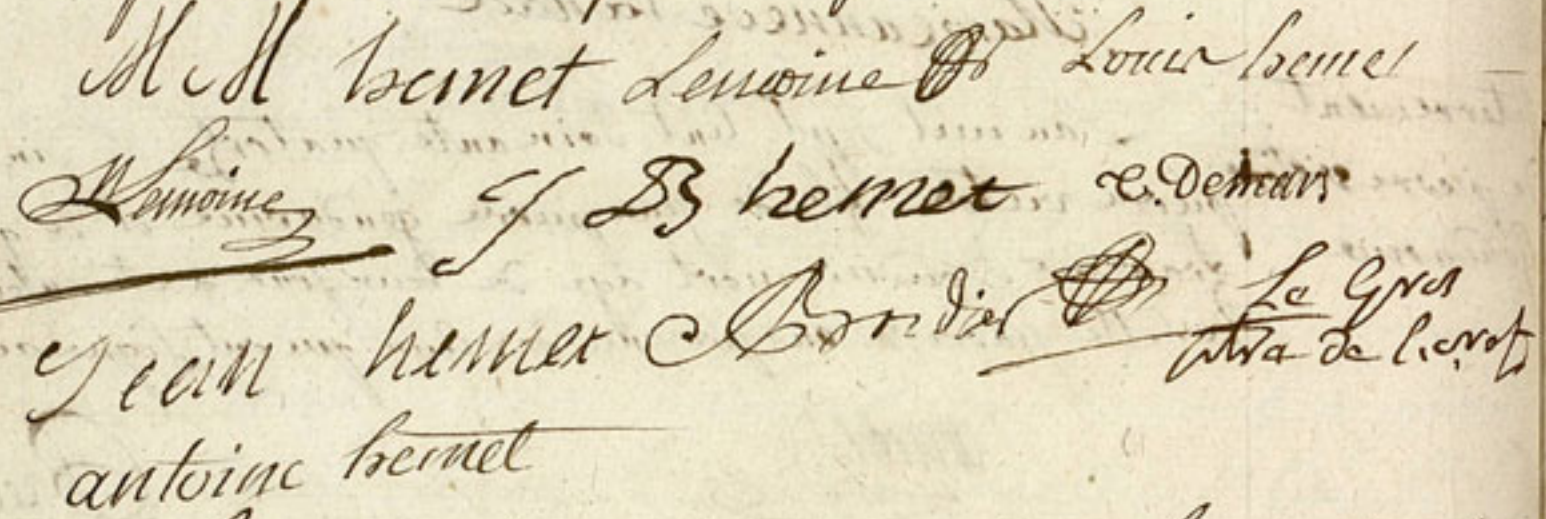 M M hemet Lemoine Louis hemet
N Lemoine J B hemet C. Demars
Jean hemet Brodier Le Gros
antoine hemet